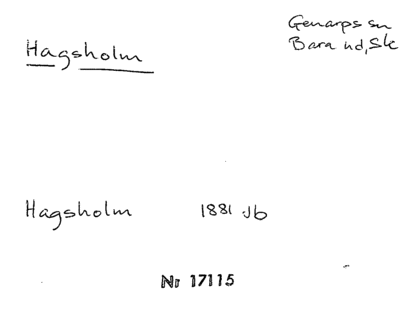 Genarps sn
Hagsholm
Bara hd, Sk
Hagsholm 1881 Jb
Nr 17115